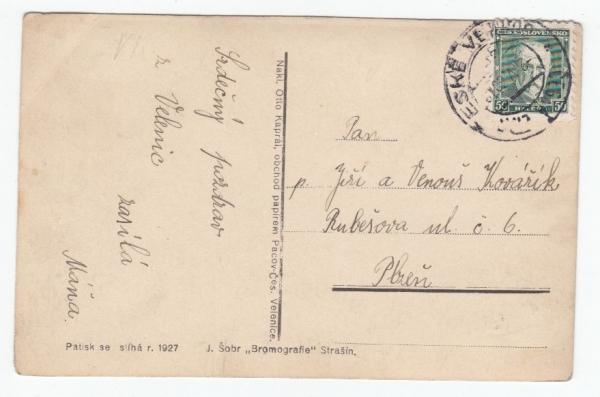 Srdečný pozdrav
z Velenic
zasílá
Máňa.
Nakl. Otto Kaprál, obchod papírem Pacov-Čes. Velenice.
ČESKOSLOVENSKO
50 HALÉŘŮ 50
ESKÉ VE
Pan
p. Jiří a Venouš Kovářík
Rubešova ul. č. 6.
Plzeň
Patisk se stíhá r. 1927 J. Šobr „Bromografie" Strašín.